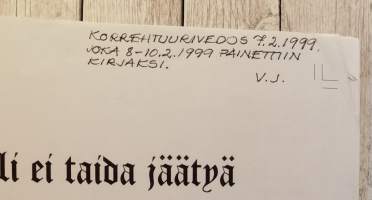 KORREHTUURIVEDOS 7.2.1999.
JOKA 8-10.2.1999 PAINETTIIN
KIRJAKSI.
V.J.
li ei taida jäätyä